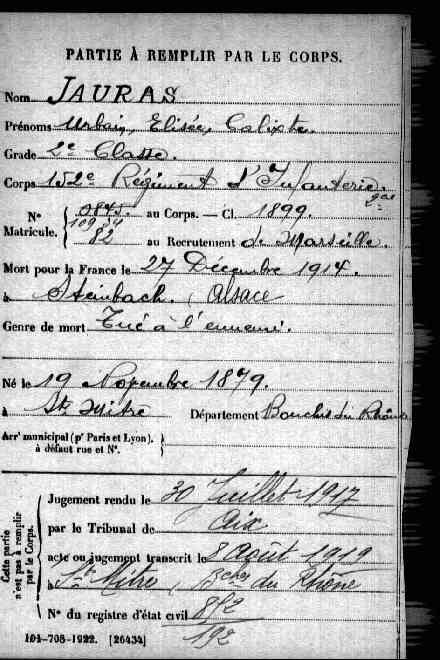 PARTIE À REMPLIR PAR LE CORPS.
Nom JAURAS
Prénoms Urbain, Elisée, Calixte.
Grade 2e Classe.
Corps 152e Régiment d'Infanterie.
N° Matricule. 0845. au Corps. — Cl. 1899.
82 au Recrutement de Marseille.
Mort pour la France le 27 Décembre 1914.
à Steinbach, Alsace
Genre de mort Tué à l'ennemi.
Né le 19 Novembre 1879.
à St Mitre Département Bouches du Rhône
Arrt municipal (pr Paris et Lyon),
à défaut rue et N°.
Cette partie n'est pas à remplir par le Corps.
Jugement rendu le 30 Juillet 1917
par le Tribunal de Aix
acte ou jugement transcrit le 8 Août 1919
à St Mitre, Bches du Rhône
N° du registre d'état civil 892
192
101-708-1922. [26434]